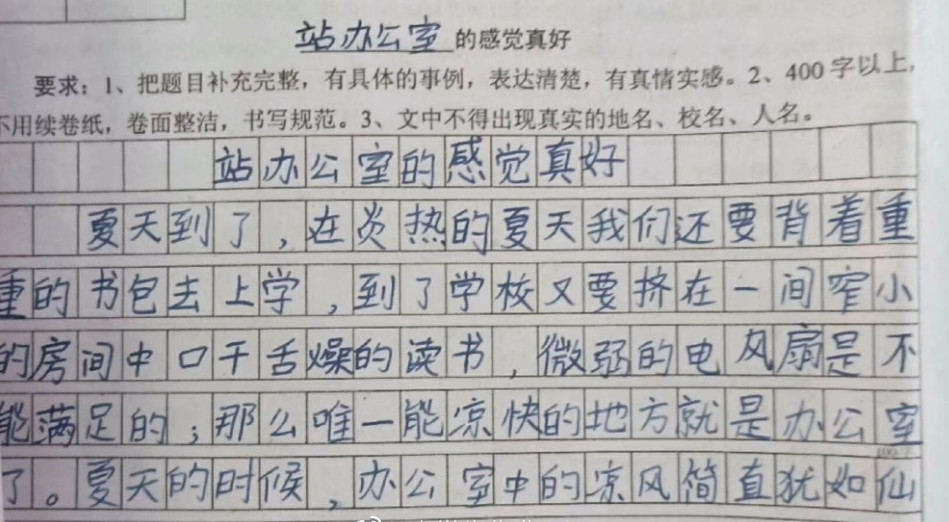 站办公室的感觉真好
要求：1、把题目补充完整，有具体的事例，表达清楚，有真情实感。2、400字以上，
不用续卷纸，卷面整洁，书写规范。3、文中不得出现真实的地名、校名、人名。
站办公室的感觉真好
夏天到了，在炎热的夏天我们还要背着重
重的书包去上学，到了学校又要挤在一间窄小
的房间中口干舌燥的读书，微弱的电风扇是不
能满足的；那么唯一能凉快的地方就是办公室
了。夏天的时候，办公室中的凉风简直犹如仙